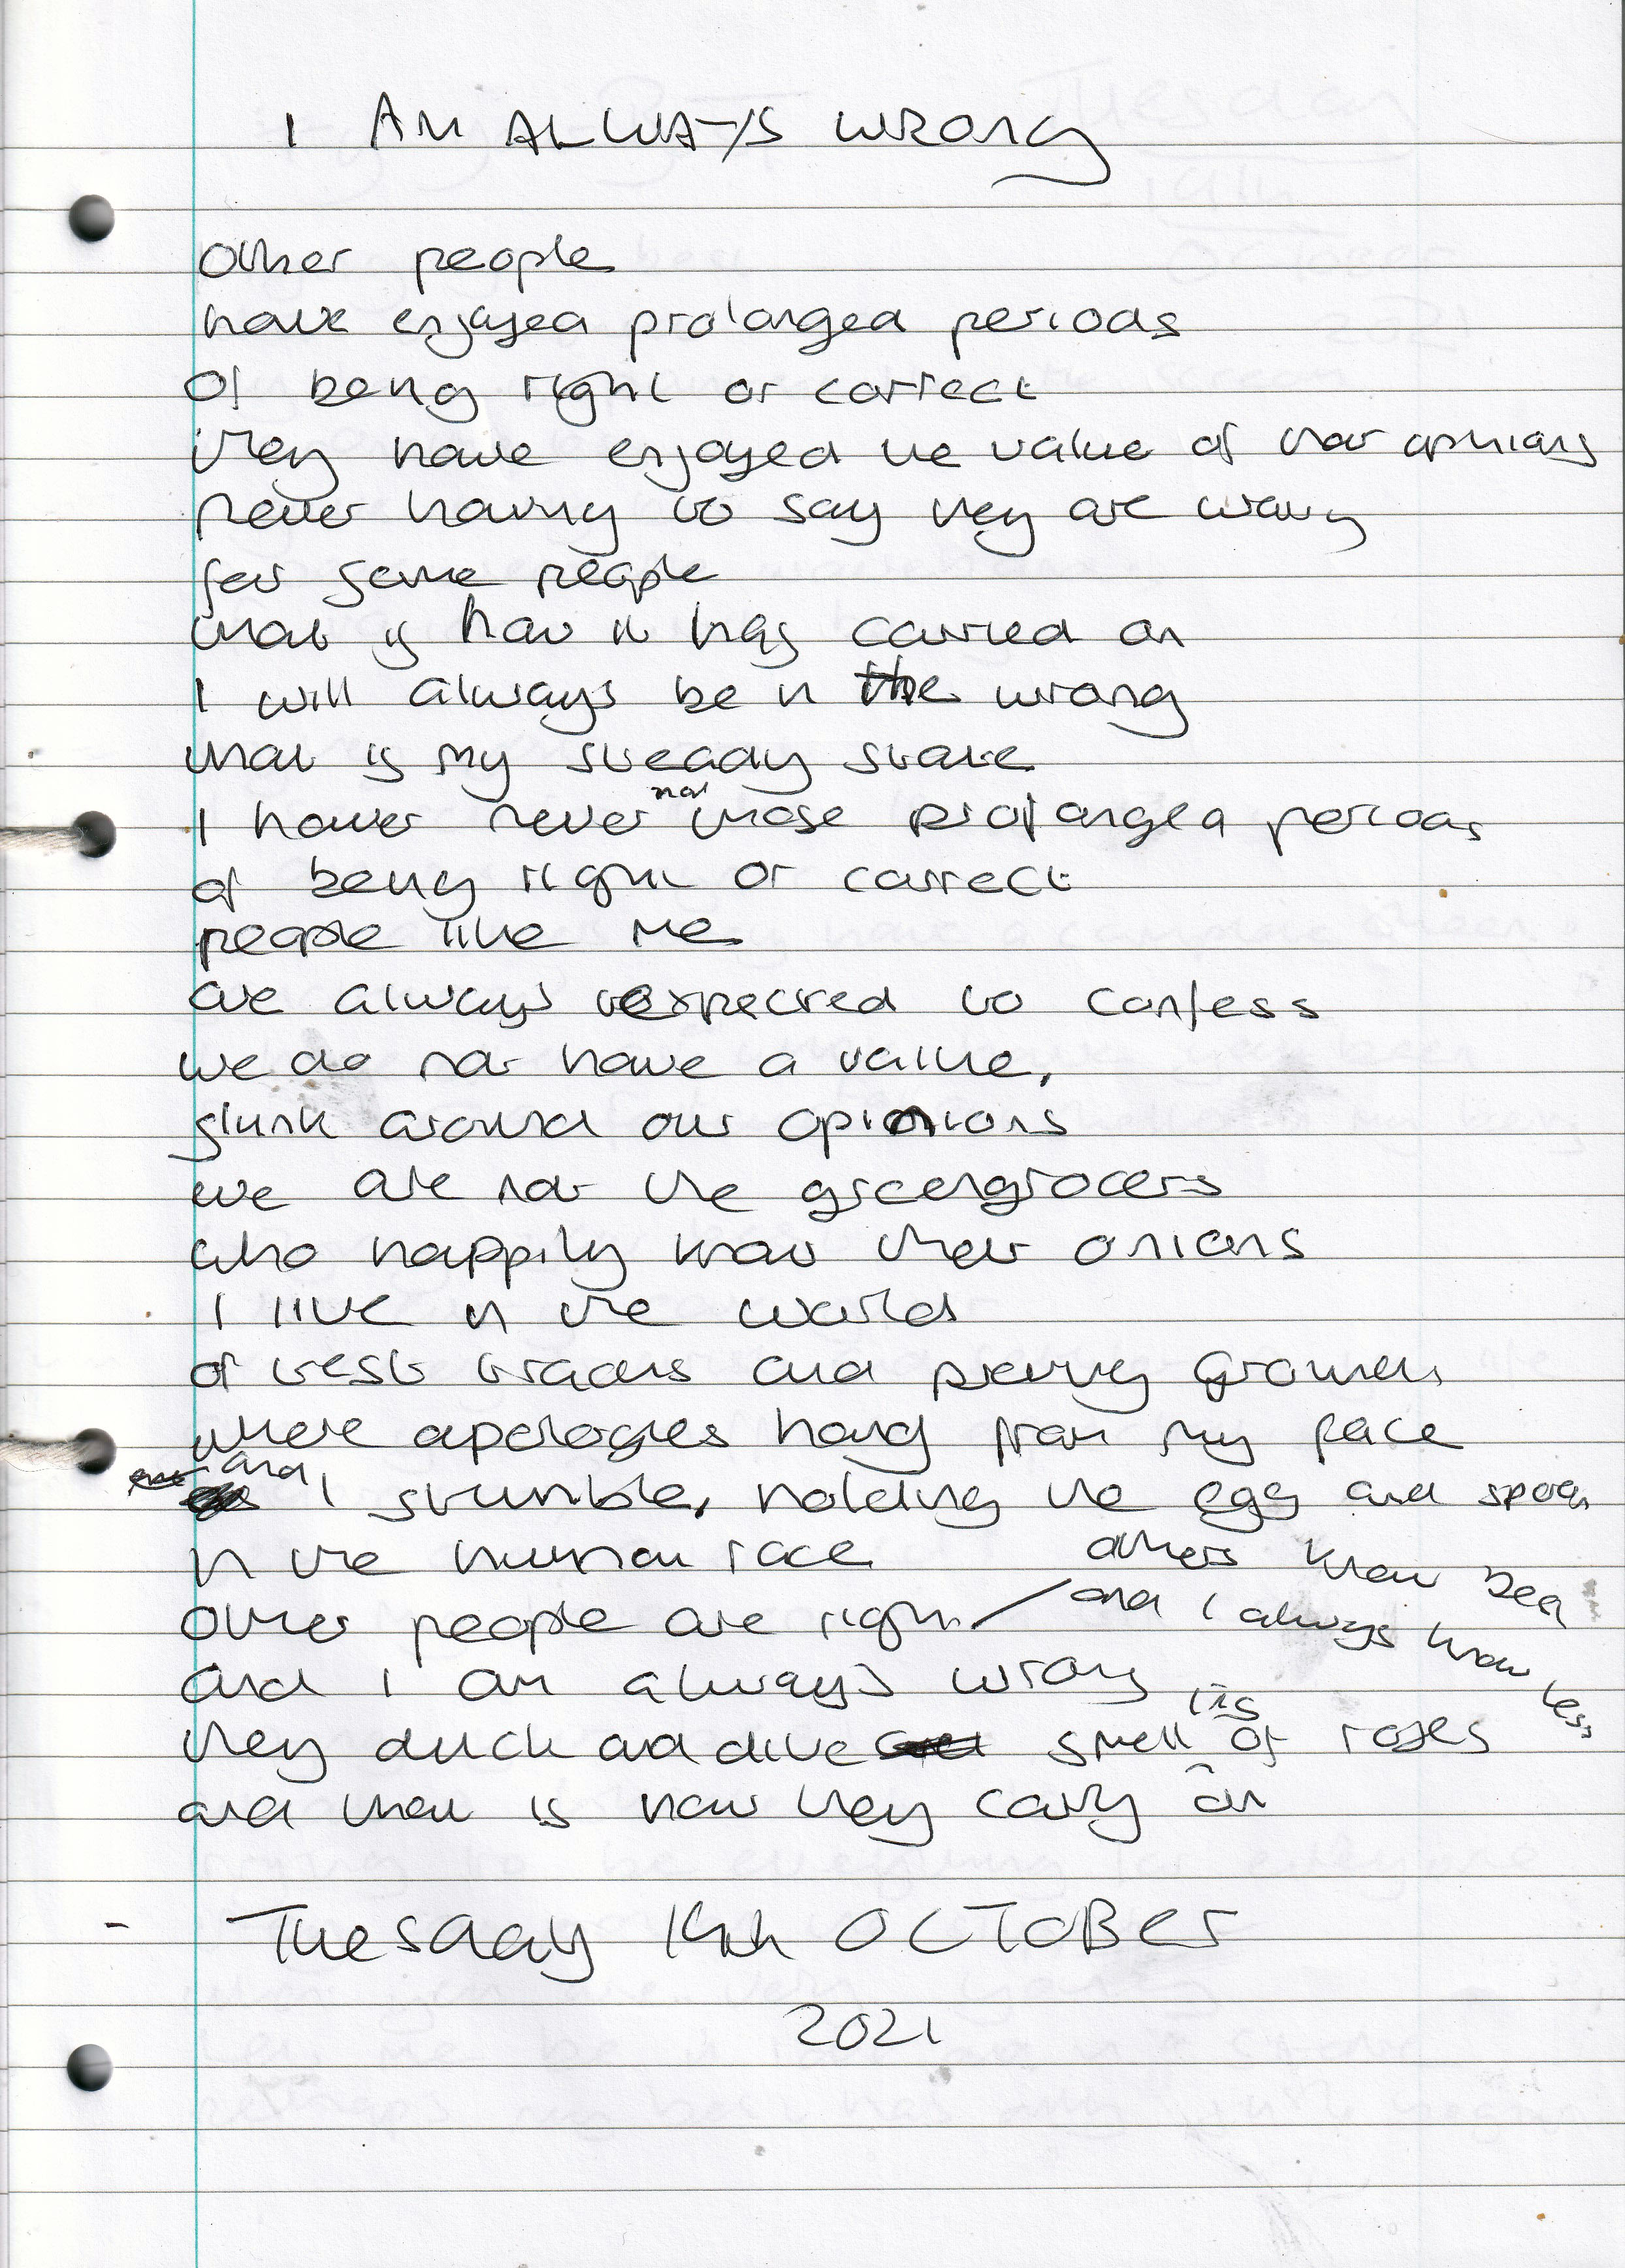 I AM ALWAYS WRONG
Other people
have enjoyed prolonged periods
of being right or correct
they have enjoyed the value of their opinions
never having to say they are wrong
for some people
that is how it has carried on
I will always be in the wrong
that is my steady state
I never not those prolonged periods
of being right or correct
people like me
are always expected to confess
we do not have a value,
slunk around our opinions
we are not the greengrocers
who happily know their onions
I live in the world
of test tracks and proving grounds
where apologies hang from my face
and I stumble, holding the egg and spoon
in the human race
other people are right / others know best
and I always know less
and I am always wrong
they duck and dive smell of roses
and that is how they carry on
Tuesday 14th OCTOBER
2021